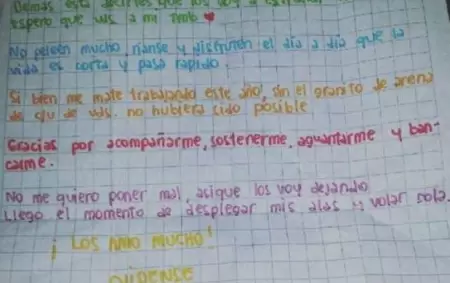 Demás está decirles que los voy a
espero que uds a mi tmb ♥
No peleen mucho, rianse y disfruten el día a día que la
vida es corta y pasa rapido.
Si bien me mate trabajando este año, sin el granito de arena
de c/u de uds. no hubiera sido posible
Gracias por acompañarme, sostenerme, aguantarme y ban-
carme.
No me quiero poner mal, asique los voy dejando
Llego el momento de desplegar mis alas y volar sola.
¡LOS AMO MUCHO!
CUIDENSE